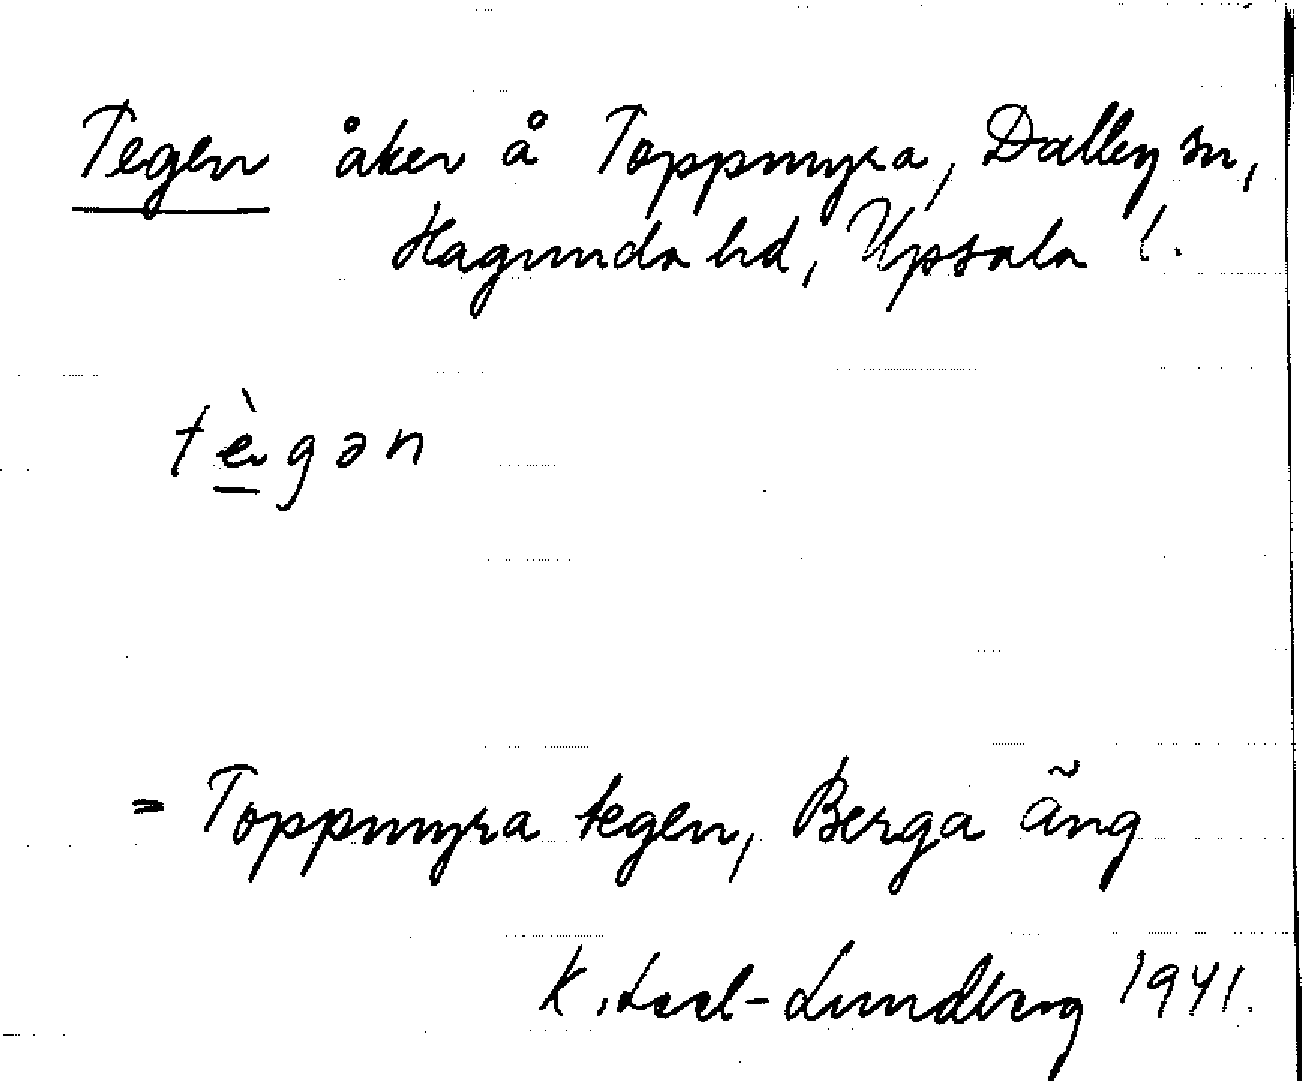 Tegen åker å Toppmyra, Dalby sn,
Hagunda hd, Upsala l.
tègən
= Toppmyra tegen, Berga äng
K. -Lundberg 1941.